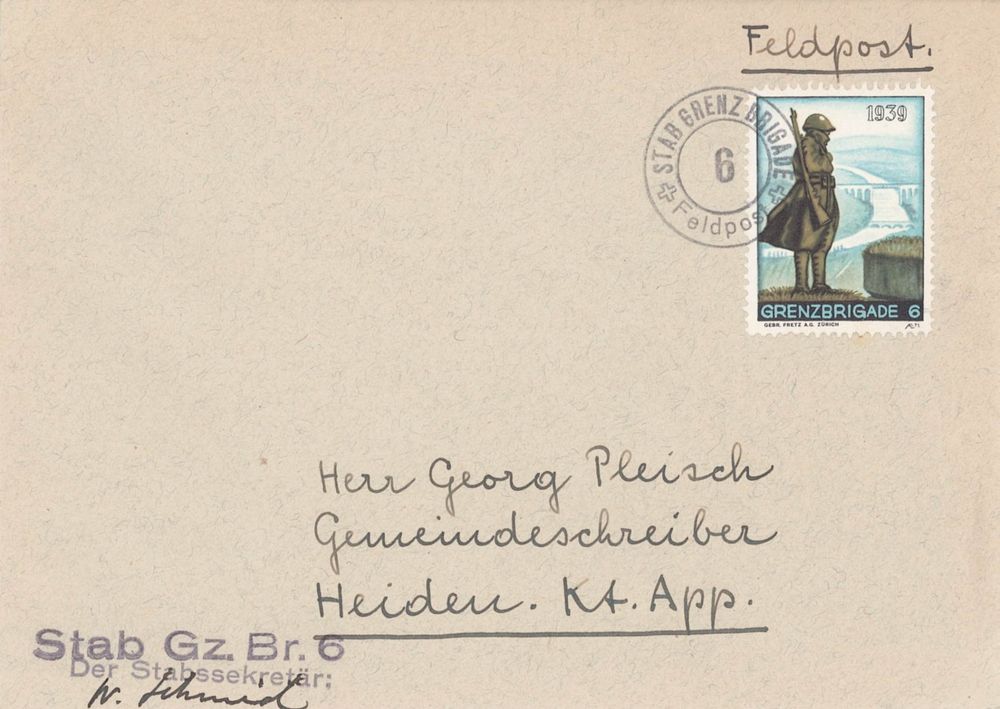 Feldpost.
STAB GRENZ BRIGADE
6
Feldpost
1939
GRENZBRIGADE 6
GEBR. FRETZ A.G. ZÜRICH
Herr Georg Pleisch
Gemeindeschreiber
Heiden. Kt. App.
Stab Gz. Br. 6
Der Stabssekretär:
W. Schmid